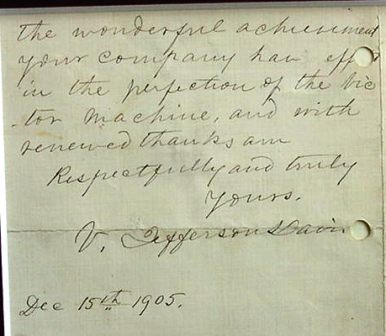 the wonderful achievement
your company has
in the perfection of the Vic
-tor Machine, and with
renewed thanks am
Respectfully and truly
Yours.
V. Jefferson Davis
Dec 15th 1905.